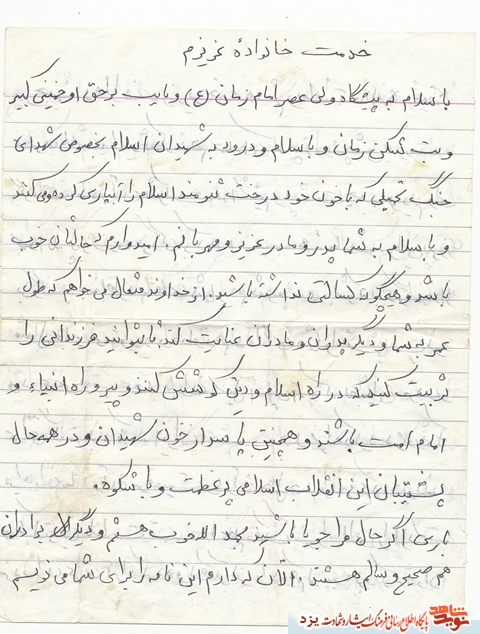 خدمت خانوادهٔ عزیزم
با سلام به پیشگاه ولی عصر امام زمان (ع) و نایب برحق او خمینی کبیر
و بت شکن زمان و با سلام و درود به شهیدان اسلام بخصوص شهدای
جنگ تحمیلی که با خون خود درخت تنومند اسلام را آبیاری کرده و می کنند
و با سلام به شما پدر و مادر عزیز و مهربانم. امیدوارم که حالتان خوب
باشد و هیچگونه کسالتی نداشته باشید. از خداوند متعال می خواهم که طول
عمر به شما و دیگر پدران و مادران عنایت کند تا بتوانید فرزندانی را
تربیت کنید که در راه اسلام و دین کوشش کنند و پیرو راه انبیاء و
امام امت باشند و همچنین پاسدار خون شهیدان و در همه حال
پشتیبان این انقلاب اسلامی پر عظمت و با شکوه.
باری اگر حال مرا جویا باشید بحمد الله خوب هستم و دیگر برادران
هم صحیح و سالم هستند. الآن که دارم این نامه را برای شما می نویسم
نوید شاهد
پایگاه اطلاع رسانی فرهنگ ایثار و شهادت یزد